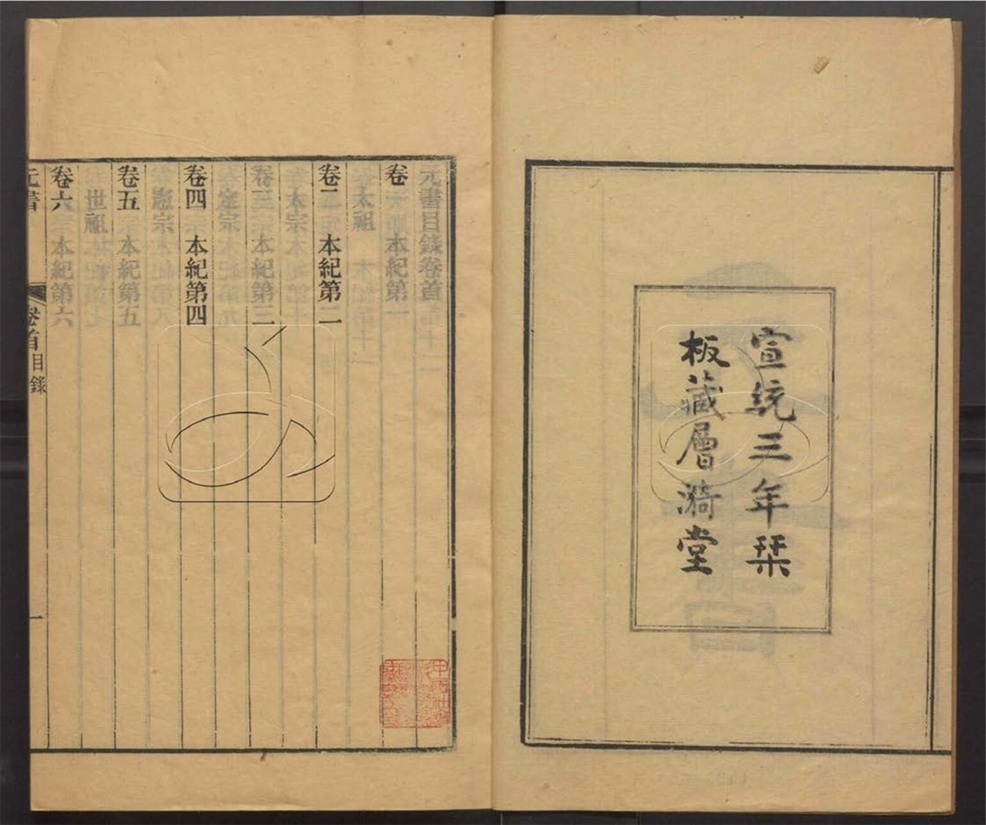 宣統三年栞
板藏層漪堂
元書目錄卷首
卷一　本紀第一
太祖
卷二　本紀第二
太宗
卷三　本紀第三
定宗
卷四　本紀第四
憲宗
卷五　本紀第五
世祖
卷六　本紀第六
元書
卷首
目錄
一